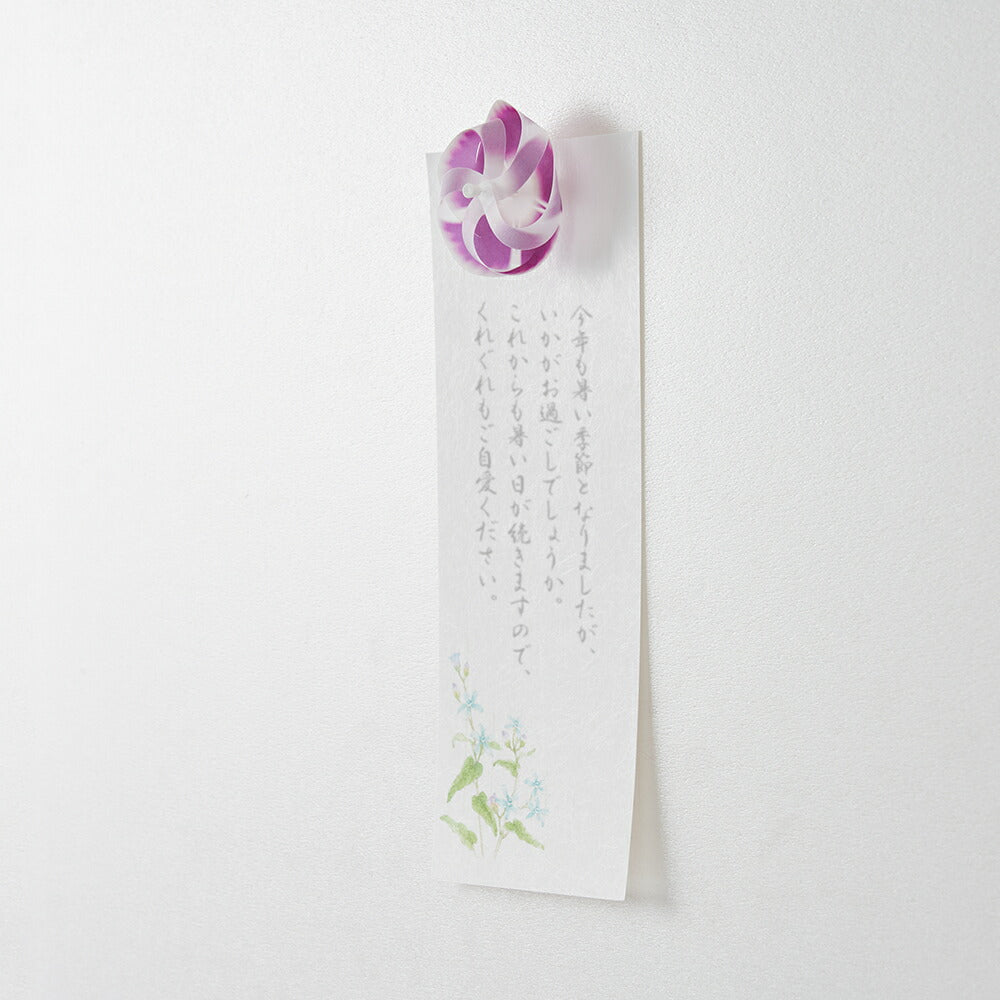 今年も暑い季節となりましたが、
いかがお過ごしでしょうか。
これからも暑い日が続きますので、
くれぐれもご自愛ください。